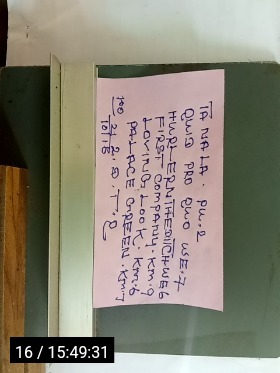 TANALA. PU.2
QUID PRO QUO WE.7
HURL-ERNTHEDITCHWE6
FIRST COMPANY.KM.9
LOVING LOOK. KM.6
PALACE GREEN.KM.7
16 / 15:49:31